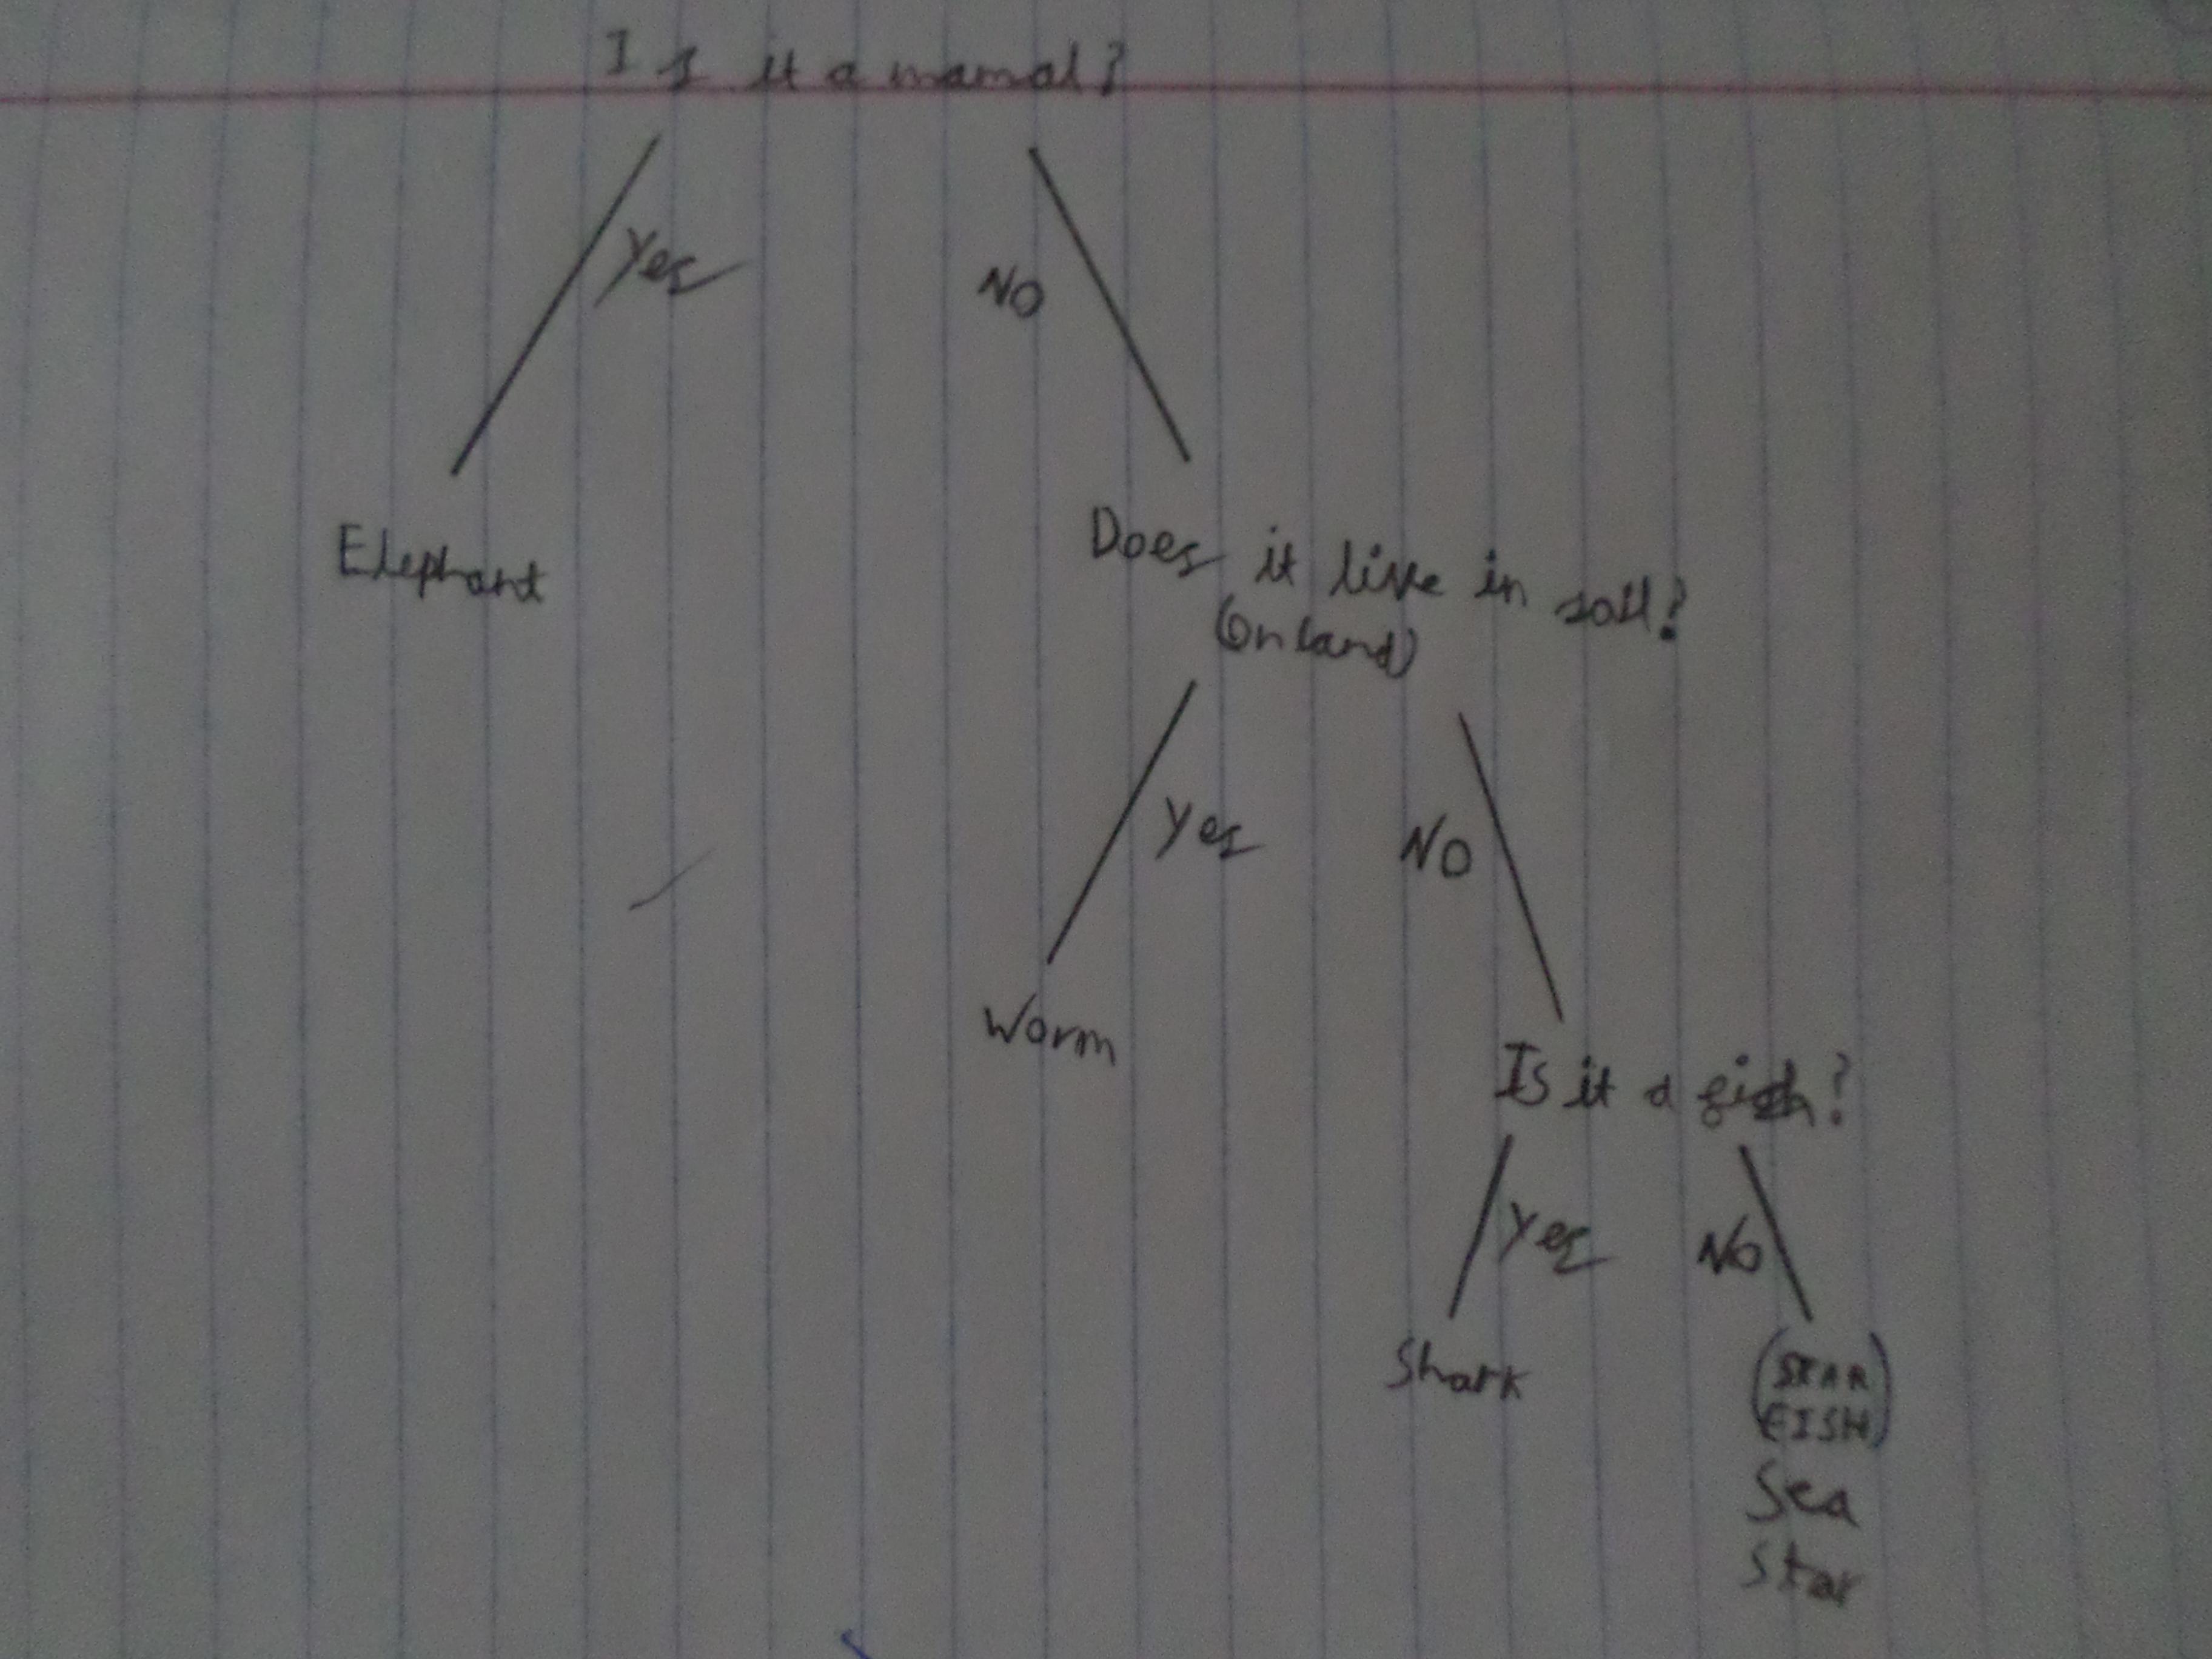 Is it a mamal?
Yes
NO
Elephant
Does it live in soil?
(on land)
Yes
NO
Worm
Is it a fish?
Yes
NO
Shark
(STAR
FISH)
Sea
Star